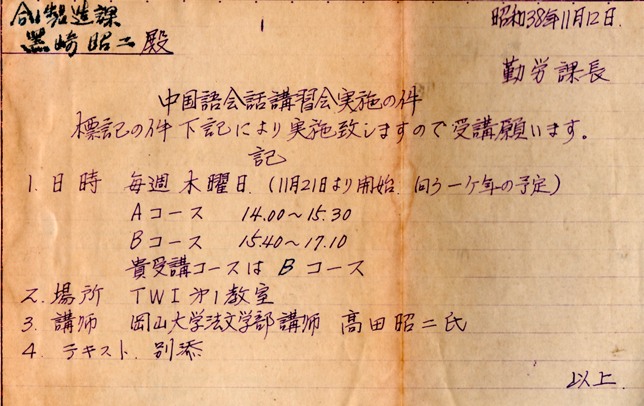 合1製造課
黒崎昭二殿
昭和38年11月12日.
勤労課長
中国語会話講習会実施の件
標記の件下記により実施致しますので受講願います。
記
1. 日時 毎週木曜日. (11月21日より開始. 向う一ヶ年の予定)
Aコース 14.00〜15.30
Bコース 15.40〜17.10
貴受講コースは B コース
2. 場所 TWI 才1教室
3. 講師 岡山大学法文学部講師 高田昭二氏
4. テキスト. 別添
以上.